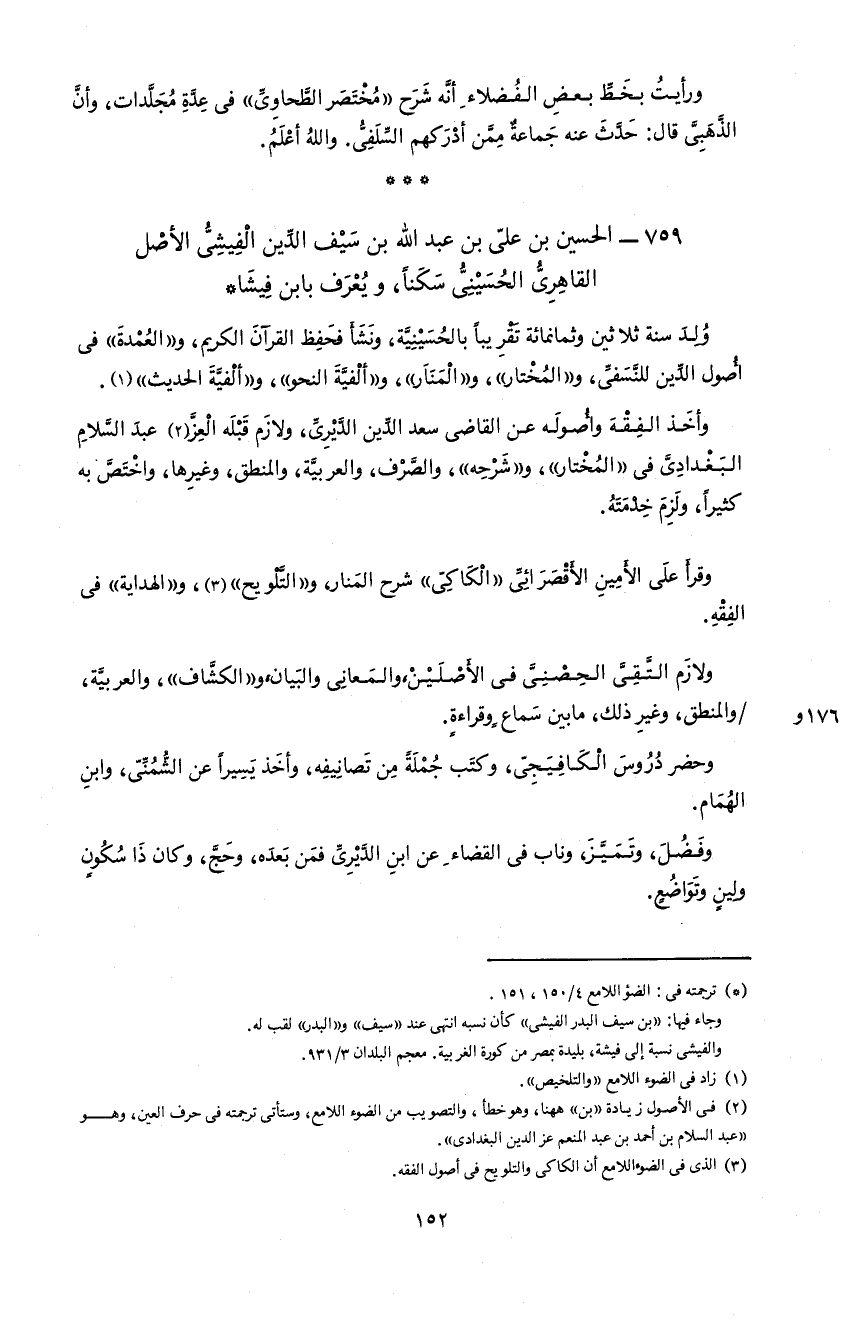 ورأيتُ بخَطِّ بعضِ الفُضلاء أنَّه شَرَح «مُخْتَصَر الطَّحاوِىِّ» فى عِدَّةِ مُجَلَّدات، وأنَّ
الذَّهَبِىَّ قال: حَدَّثَ عنه جَماعةٌ مِمَّن أدْرَكهم السِّلَفِىُّ. واللهُ أعْلَمُ.
* * *
٧٥٩ ــ الحسين بن علىّ بن عبد الله بن سَيْف الدِّين الْفِيشِىُّ الأصْل
القاهِرِىُّ الحُسَيْنِىُّ سَكَناً، و يُعْرَف بابن فِيشَا*
وُلِدَ سنة ثلاثين وثمانمائة تَقْرِيباً بالحُسَيْنِيَّة، ونَشَأَ فحَفِظ القرآنَ الكريم، و«العُمْدةَ» فى
أصُول الدِّين للنَّسَفىِّ، و«المُخْتار»، و«الْمَنَار»، و«ألْفيَّةَ النحو»، و«ألْفيَّةَ الحديث»(١).
وأخَذ الفِقْهَ وأصُولَه عن القاضى سعد الدِّين الدَّيْرِىِّ، ولازَم قَبْلَه الْعِزَّ(٢) عبدَ السَّلامِ
البَغْدادِىَّ فى «المُخْتار»، و«شَرْحِه»، والصَّرْف، والعربيَّة، والمنطق، وغيرِها، واخْتَصَّ به
كثيراً، ولَزِمَ خِدْمَتَهُ.
وقرأ علَى الأمِينِ الأقْصَرَائِىِّ «الْكَاكِىّ» شرح المَنار، و«التَّلْويح»(٣)، و«الهداية» فى
الفِقْهِ.
ولازَم التَّقِىَّ الحِصْنِىَّ فى الأصْلَيْنِ،والمَعانِى والبَيان،و«الكشَّاف»، والعربيَّة،
١٧٦و /والمنطق، وغيرِ ذلك، مابين سَماعٍ وقراءةٍ.
وحضر دُرُوسَ الْكَافِيَجِىّ، وكتَب جُمْلَةً مِن تَصانِيفِه، وأخَذ يَسِيراً عن الشُّمُنِّى، وابنِ
الهُمَام.
وفَضُلَ، وتَمَيَّزَ، وناب فى القضاء عن ابنِ الدَّيْرِىِّ فمَن بَعدَه، وحَجَّ، وكان ذَا سُكُونٍ
ولِينٍ وتَوَاضُعٍ.
(*) ترجمته فى : الضوْ اللامع ٤/١٥٠، ١٥١ .
وجاء فيها: «بن سيف البدر الفيشى» كأن نسبه انتهى عند «سيف» و«البدر» لقب له.
والفيشى نسبة إلى فيشة، بليدة بمصر من كورة الغربية. معجم البلدان ٩٣١/٣.
(١) زاد فى الضوء اللامع «والتلخيص».
(٢) فى الأصول زيادة «بن» ههنا، وهو خطأ ، والتصويب من الضوء اللامع، وستأتى ترجمته فى حرف العين، وهــو
«عبد السلام بن أحمد بن عبد المنعم عز الدين البغدادى».
(٣) الذى فى الضوءاللامع أن الكاكى والتلويح فى أصول الفقه.
١٥٢